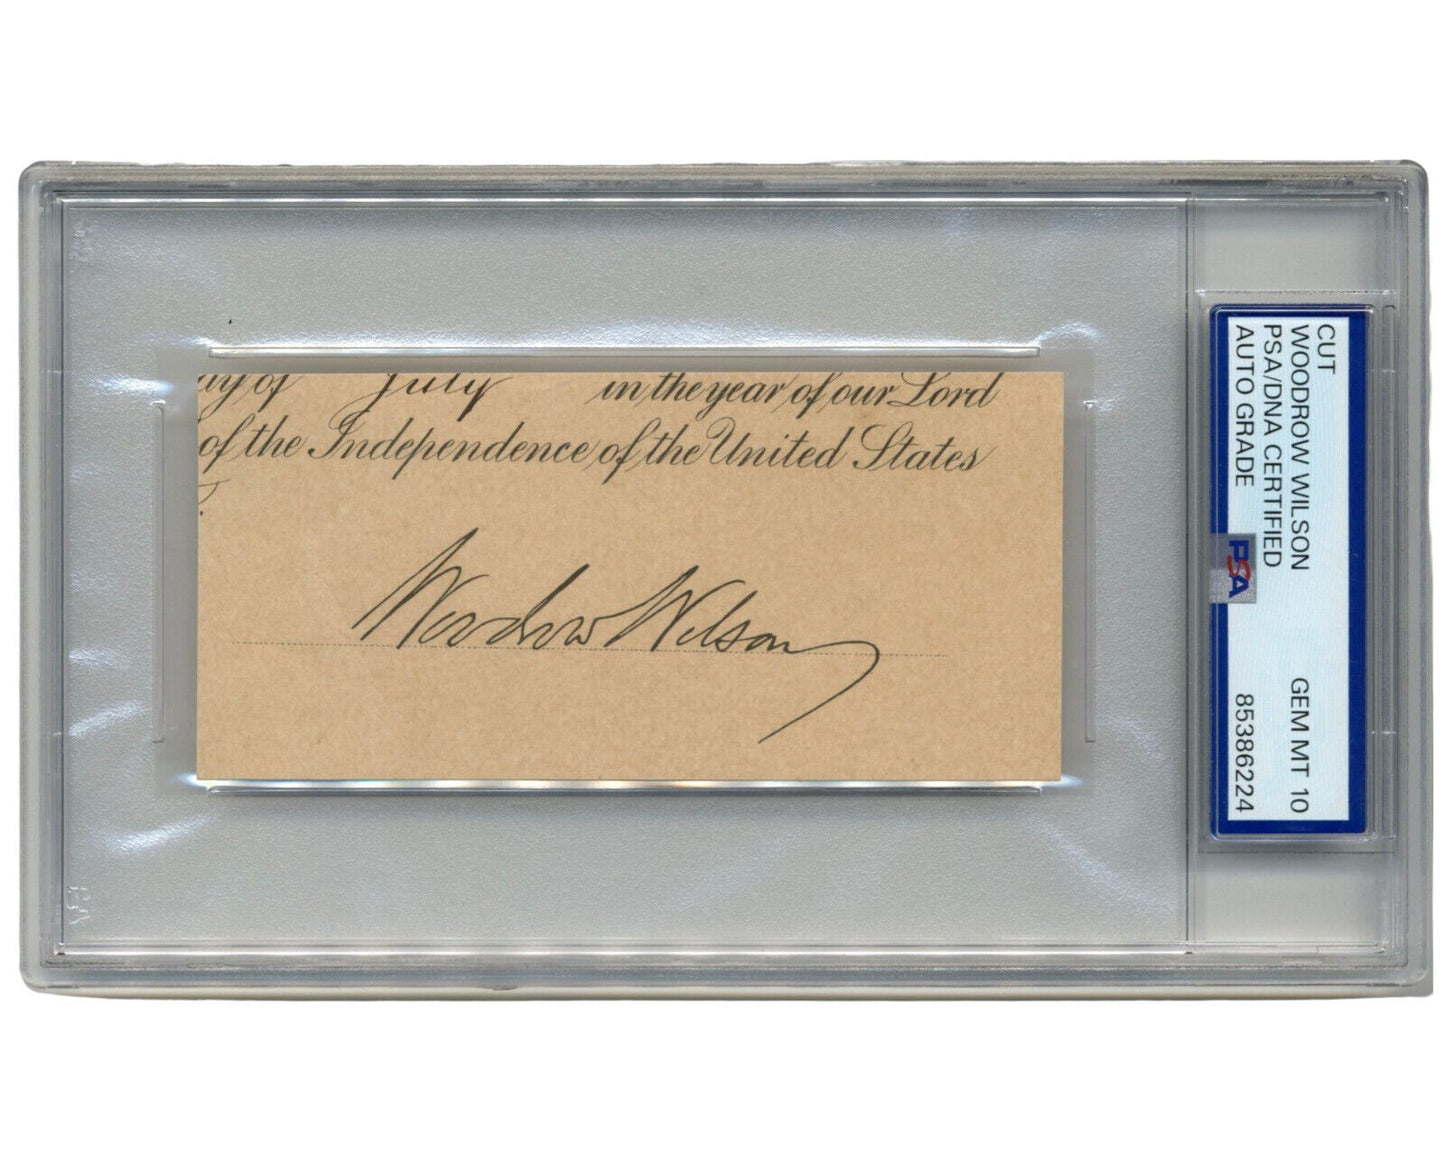 ay of July in the year of our Lord
of the Independence of the United States
Woodrow Wilson
CUT
WOODROW WILSON
PSA/DNA CERTIFIED GEM MT 10
AUTO GRADE 85386224
PSA